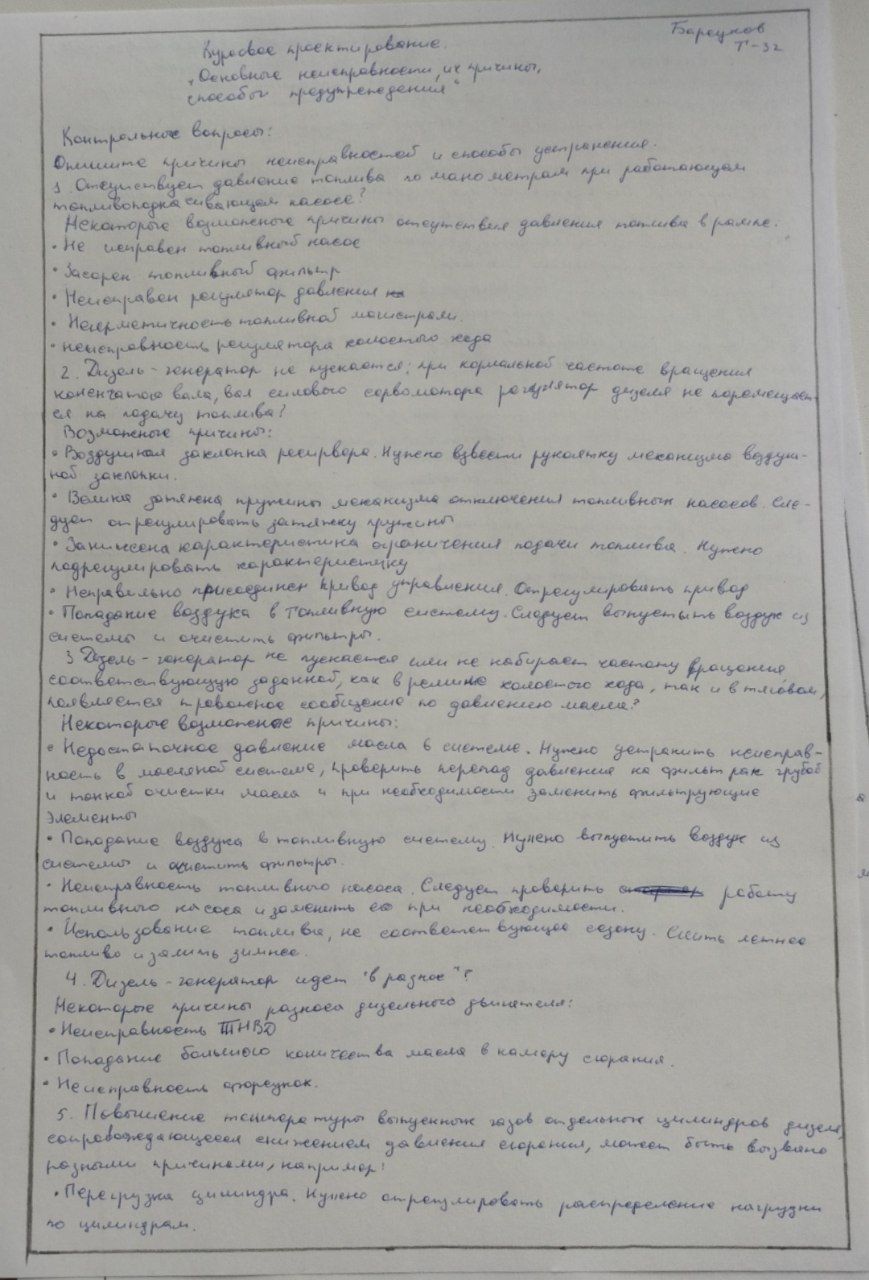 Барсуков
Т-32
Курсовое проектирование.
"Основные неисправности, их причины,
способы предупреждения"
Контрольные вопросы:
Опишите причины неисправностей и способы устранения.
1. Отсутствует давление топлива по манометрам при работающем
топливоподкачивающем насосе?
Некоторые возможные причины отсутствия давления топлива в рампе.
• Не исправен топливный насос
• Засорен топливный фильтр
• Неисправен регулятор давления
• Негерметичность топливной магистрали.
• неисправность регулятора холостого хода
2. Дизель-генератор не пускается: при нормальной частоте вращения
коленчатого вала, вал силового сервомотора регулятор дизеля не перемещает-
ся на подачу топлива?
Возможные причины:
• Воздушная заслонка ресивера. Нужно взвести рукоятку механизма воздуш-
ной заслонки.
• Велика затяжка пружины механизма отключения топливных насосов. Сле-
дует отрегулировать затяжку пружины
• Занижена характеристика ограничения подачи топлива. Нужно
подрегулировать характеристику
• Неправильно присоединен привод управления. Отрегулировать привод
• Попадание воздуха в топливную систему. Следует выпустыть воздух из
системы и очистить фильтры.
3 Дизель-генератор не пускается или не набирает частоту вращения
соответствующую заданной, как в режиме холостого хода, так и в тяговом,
появляется тревожное сообщение по давлению масла?
Некоторые возможные причины:
• Недостаточное давление масла в системе. Нужно устранить неисправ-
ность в масляной системе, проверить перепад давления на фильтрах грубой
и тонкой очистки масла и при необходимости заменить фильтрующие
элементы
• Попадание воздуха в топливную систему. Нужно выпустить воздух из
системы и очистить фильтры.
• Неисправность топливного насоса. Следует проверить работу
топливного насоса и заменить его при необходимости.
• Использование топлива, не соответствующее сезону. Слить летнее
топливо и залить зимнее.
4. Дизель-генератор идет "в разнос"?
Некоторые причины разноса дизельного двигателя:
• Неисправность ТНВД
• Попадание большого количества масла в камеру сгорания.
• Неисправность форсунок.
5. Повышение температуры выпускных газов отдельных цилиндров дизеля,
сопровождающееся снижением давления сгорания, может быть вызвано
разными причинами, например:
• Перегрузка цилиндра. Нужно отрегулировать распределение нагрузки
по цилиндрам.